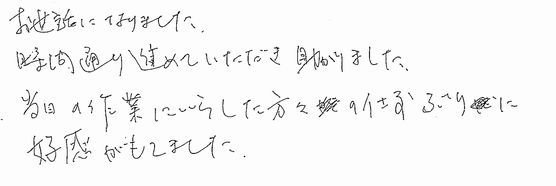 お世話になりました。
時間通り進めていただき助かりました。
当日の作業にいらした方々の仕事ぶりに
好感がもてました。